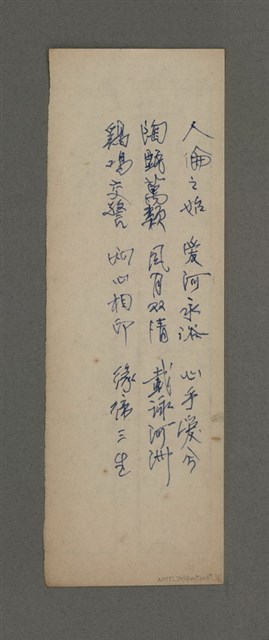 人倫之始　愛河永浴　心乎愛兮
陶甄萬類　風月双清　載詠河洲
鷄鳴交警　心心相印　緣締三生